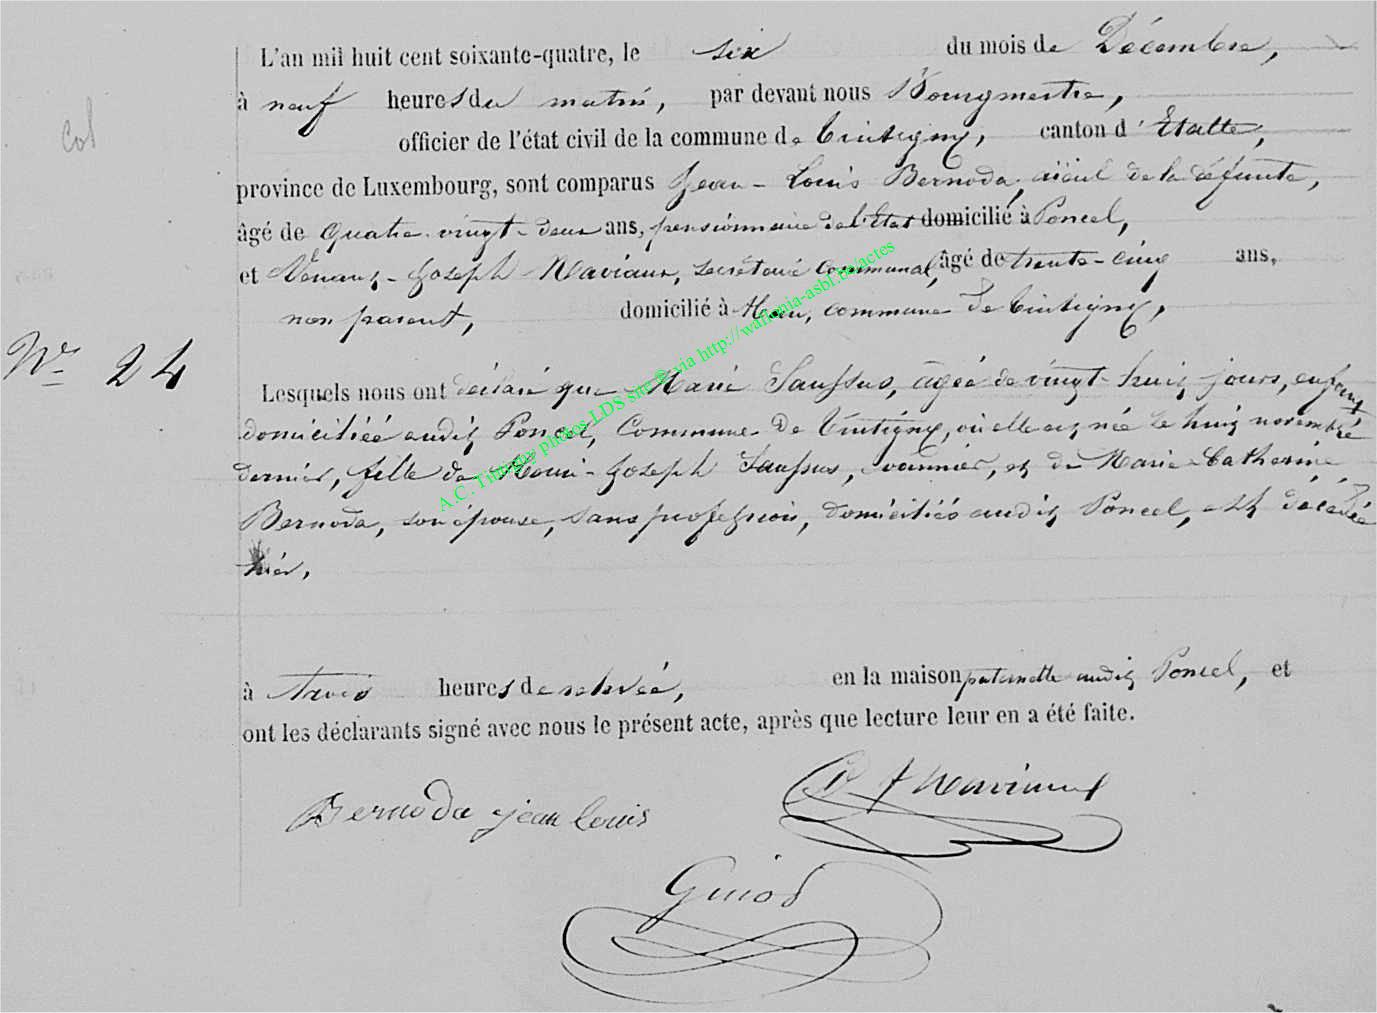 L'an mil huit cent soixante-quatre, le six du mois de Décembre,
à neuf heures du matin, par devant nous Bourgmestre,
col
officier de l'état civil de la commune de Tintigny, canton d'Etalle,
province de Luxembourg, sont comparus Jean-Louis Bernoda, aïeul de la défunte,
âgé de quatre-vingt-deux ans, pensionnaire de l'Etat domicilié à Poncel,
et Joseph Naviaux, secrétaire communal, âgé de trente-cinq ans,
non parent, domicilié à Han, commune de Tintigny,
No 24
Lesquels nous ont déclaré que Marie Saussus, âgée de vingt-huit jours, enfant
domiciliée audit Poncel, Commune de Tintigny, où elle est née le huit novembre
dernier, fille de Henri-Joseph Saussus, vannier, et de Marie-Catherine
Bernoda, son épouse, sans profession, domiciliés audit Poncel, est décédée
hier,
à trois heures de relevée, en la maison paternelle audit Poncel, et
ont les déclarants signé avec nous le présent acte, après que lecture leur en a été faite.
Bernoda jean louis Naviaux
Guiot
A.C. Tintigny photos LDS site © via http://wallonia-asbl.be/actes